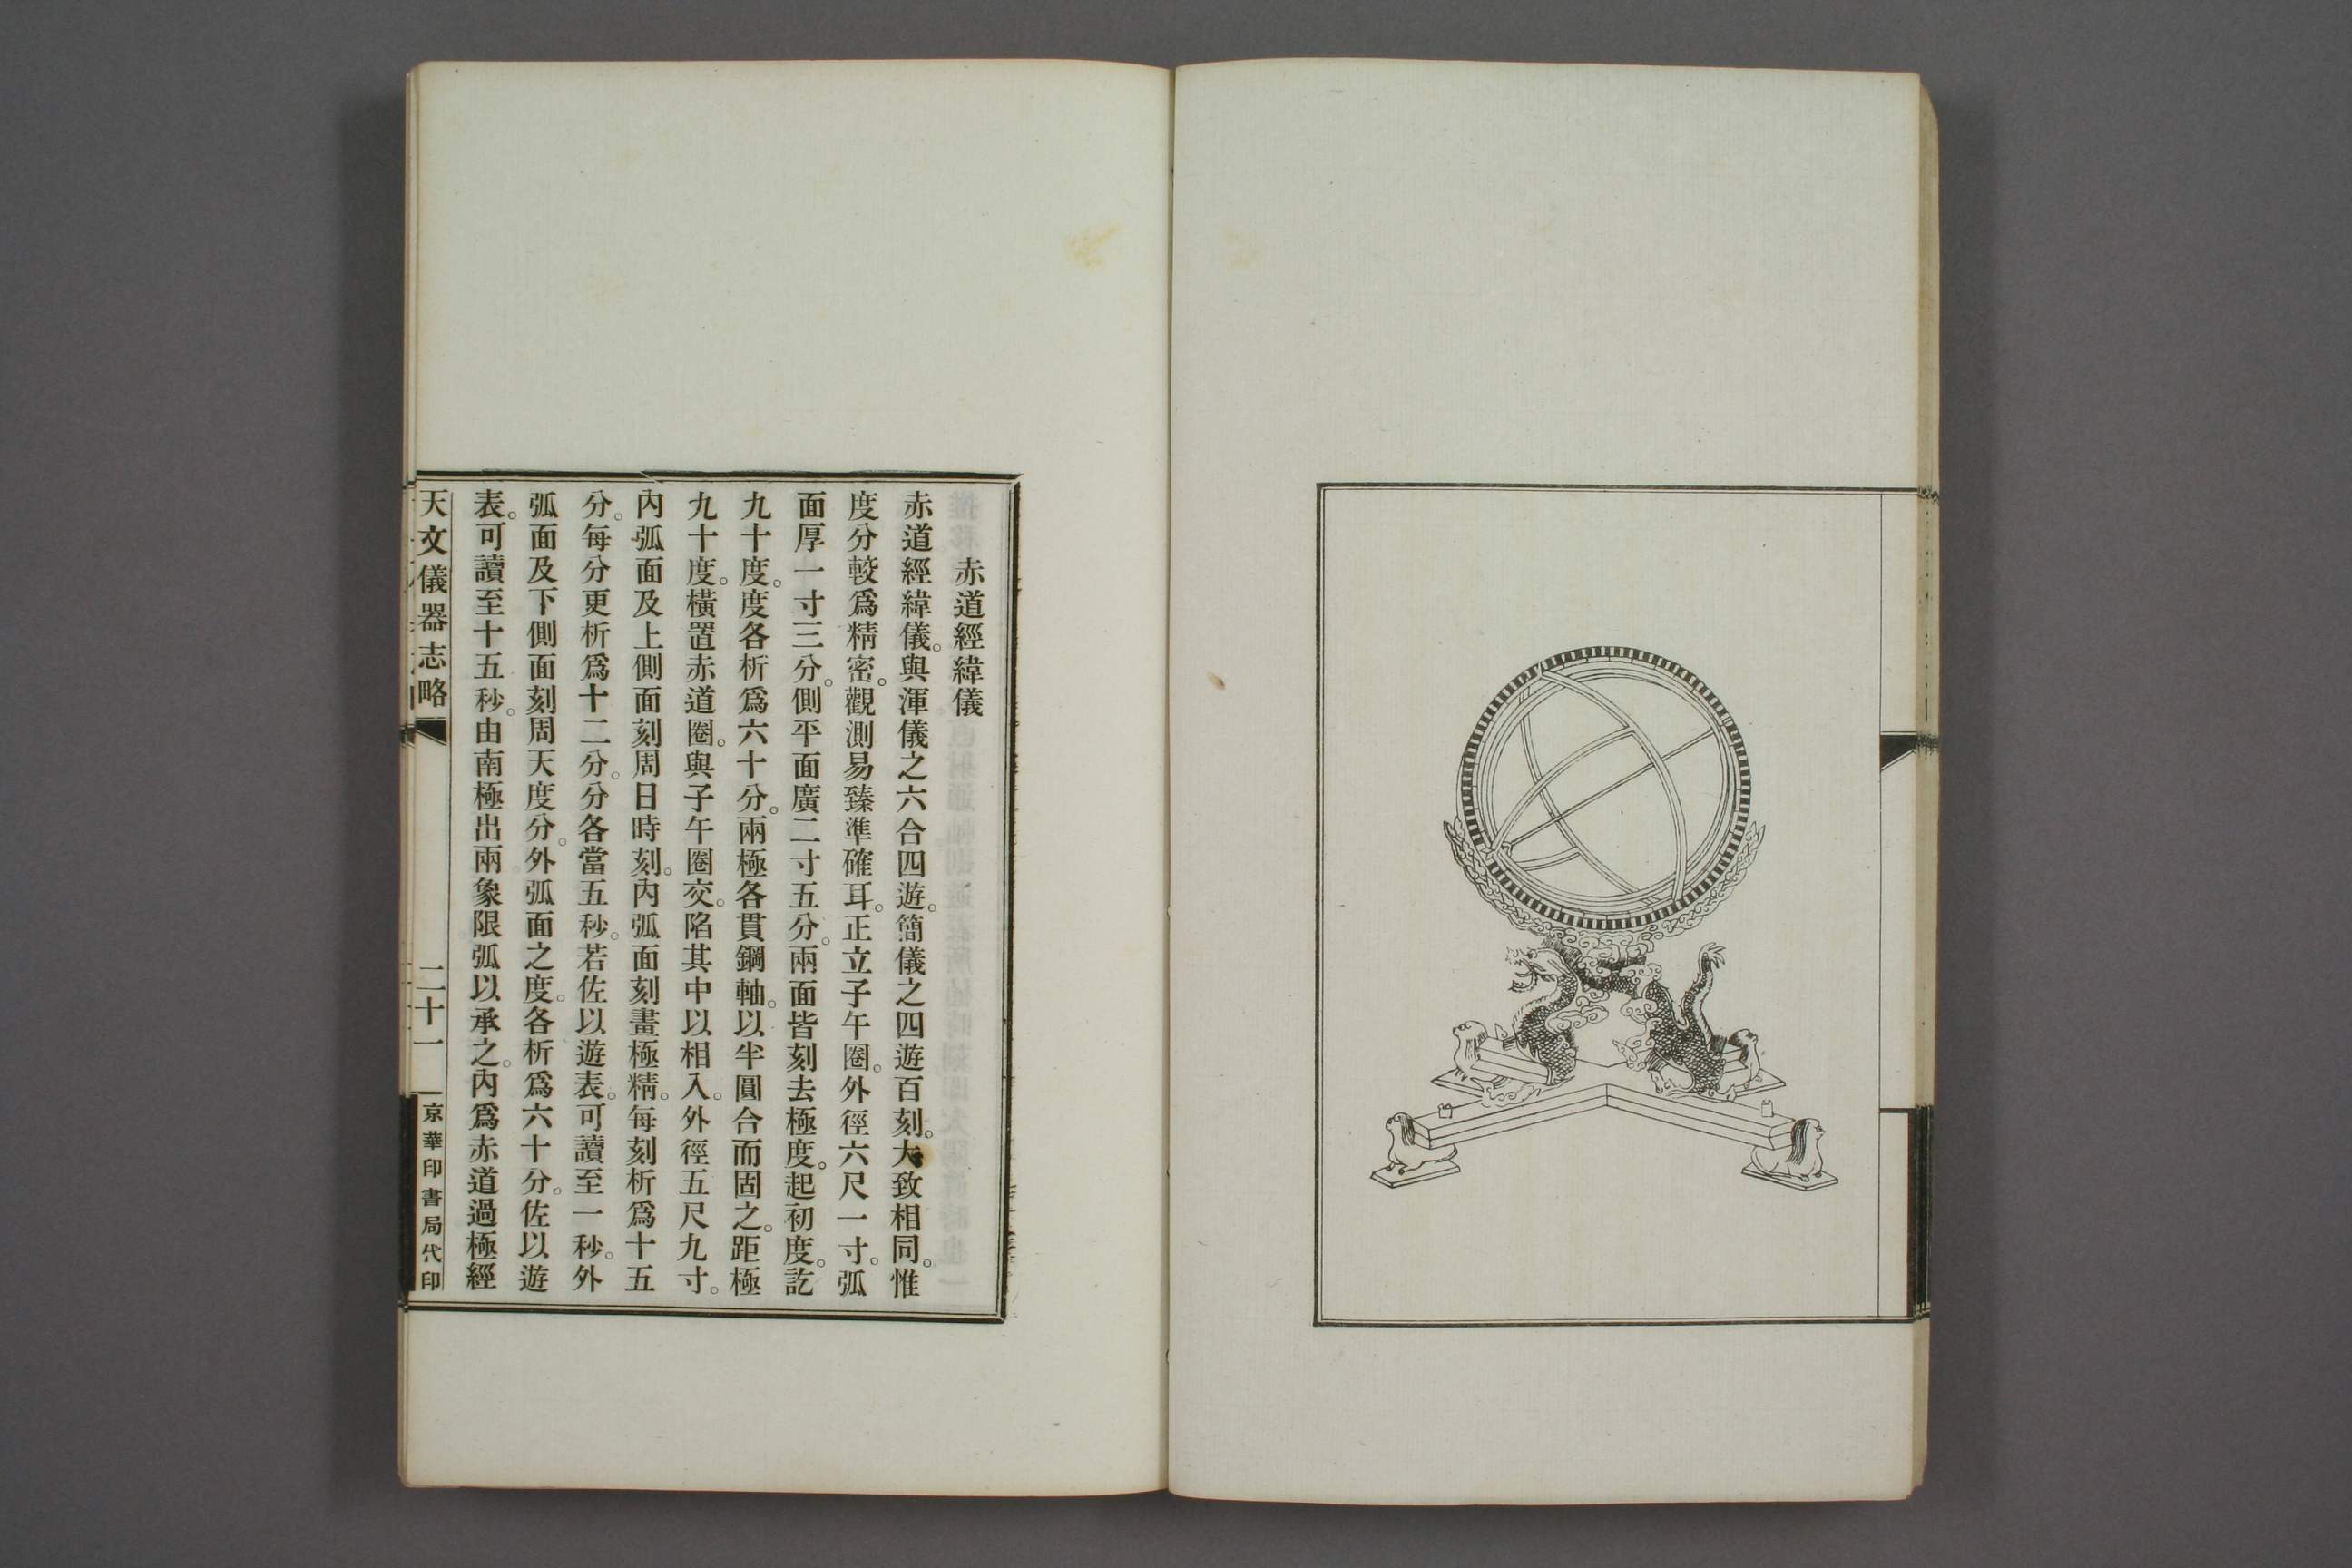 赤道經緯儀
赤道經緯儀。與渾儀之六合四遊。簡儀之四遊百刻。大致相同。惟
度分較爲精密。觀測易臻準確耳。正立子午圈。外徑六尺一寸。弧
面厚一寸三分。側平面廣二寸五分。兩面皆刻去極度。起初度。訖
九十度。度各析爲六十分。兩極各貫鋼軸。以半圓合而固之。距極
九十度。橫置赤道圈。與子午圈交。陷其中以相入。外徑五尺九寸。
內弧面及上側面刻周日時刻。內弧面刻畫極精。每刻析爲十五
分。每分更析爲十二分。分各當五秒。若佐以遊表。可讀至一秒。外
弧面及下側面刻周天度分。外弧面之度。各析爲六十分。佐以遊
表。可讀至十五秒。由南極出兩象限弧以承之。內爲赤道過極經
天文儀器志略
二十一
京華印書局代印